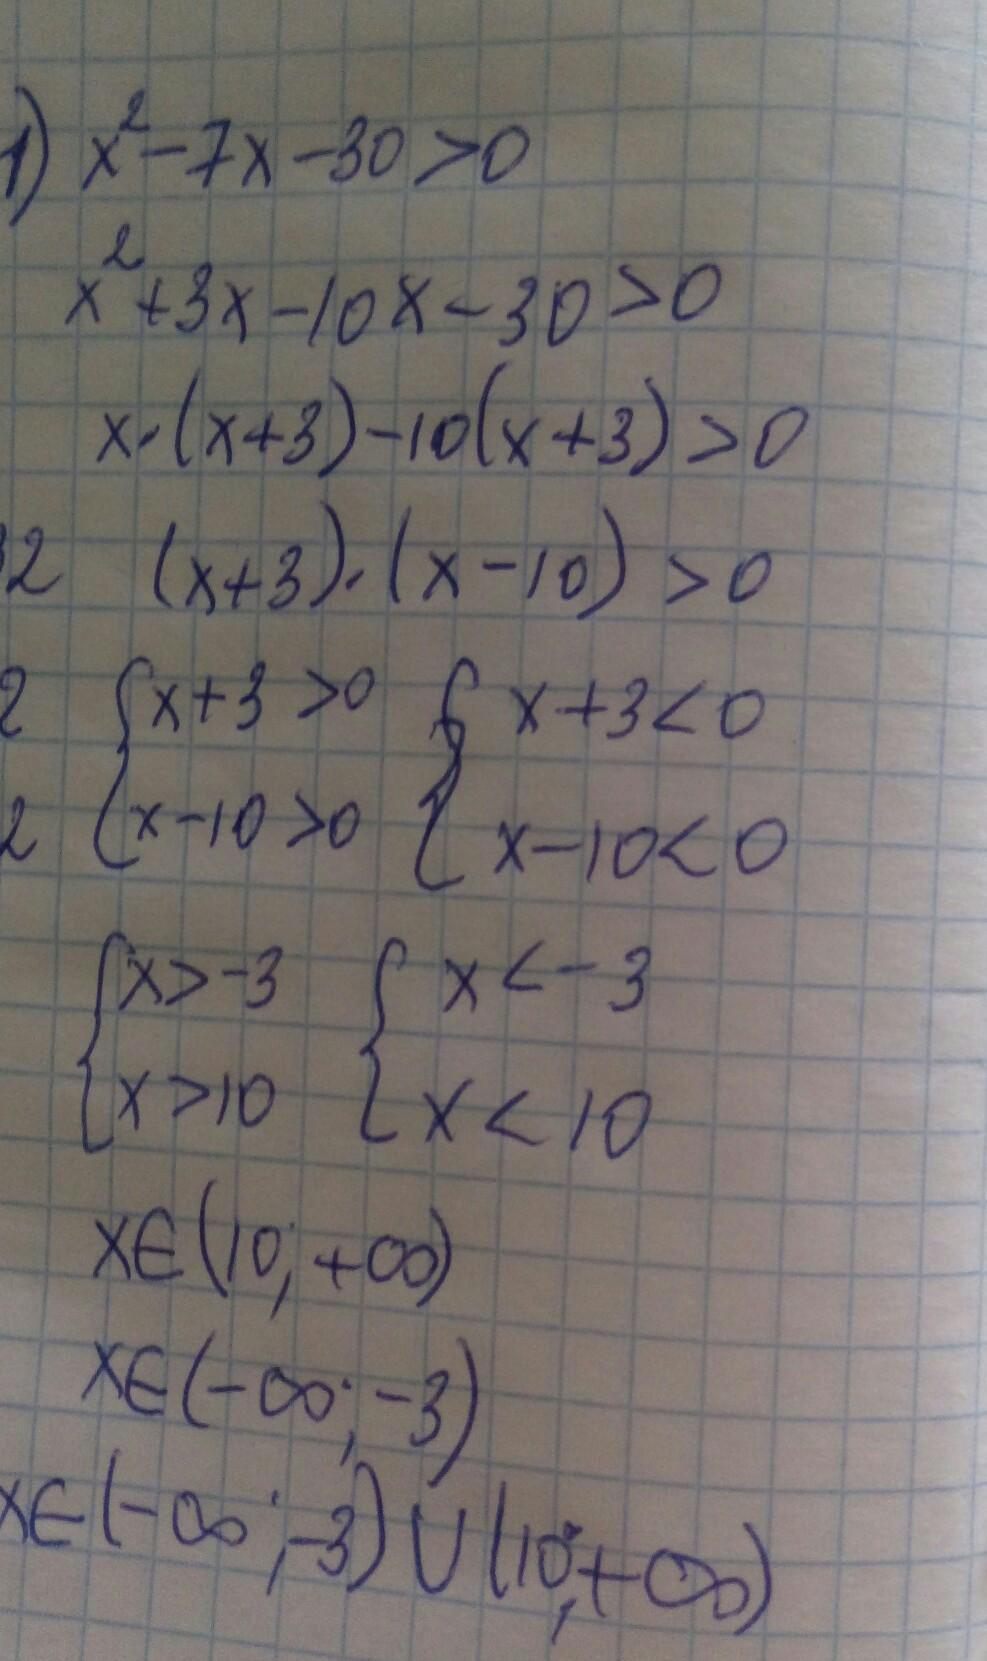 1) x² - 7x - 30 > 0
x² + 3x - 10x - 30 > 0
x · (x + 3) - 10(x + 3) > 0
2 (x + 3) · (x - 10) > 0
2 { x + 3 > 0 { x + 3 < 0
2 { x - 10 > 0 { x - 10 < 0
{ x > -3 { x < -3
{ x > 10 { x < 10
x ∈ (10; +∞)
x ∈ (-∞; -3)
x ∈ (-∞; -3) ∪ (10; +∞)